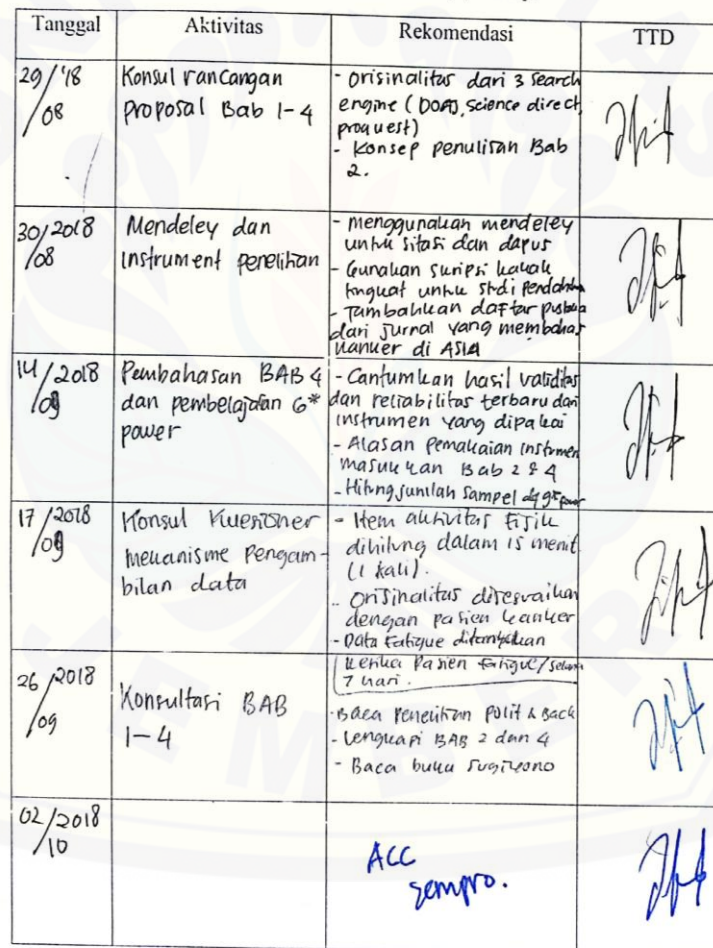 Tanggal Aktivitas Rekomendasi TTD
29/'18
/08
Konsul rancangan
proposal Bab 1-4
- Orisinalitas dari 3 search
engine (DOAJ, science direct,
proquest)
- Konsep penulisan Bab
2.
30/2018
/08
Mendeley dan
instrument penelitian
- Menggunakan mendeley
untuk sitasi dan dapus
- Gunakan skripsi kakak
tingkat untuk studi pendahuluan
- Tambahkan daftar pustaka
dari jurnal yang membahas
kanker di ASIA
14/2018
/09
Pembahasan BAB 4
dan pembelajaran G*
power
- Cantumkan hasil validitas
dan reliabilitas terbaru dari
instrumen yang dipakai
- Alasan pemakaian instrumen
masukkan Bab 2 & 4
- Hitung jumlah sampel dg g* power
17/2018
/09
Konsul Kuesioner
mekanisme Pengam-
bilan data
- Item aktivitas fisik
dihitung dalam 15 menit
(1 kali).
- Orisinalitas disesuaikan
dengan pasien kanker
- Data Fatigue ditambahkan
ketika Pasien fatigue/selama
7 hari.
26/2018
/09
Konsultasi BAB
1-4
- Baca Penelitian Polit & Back
- Lengkapi BAB 2 dan 4
- Baca buku Sugiyono
02/2018
/10
ACC
sempro.
JEMBER